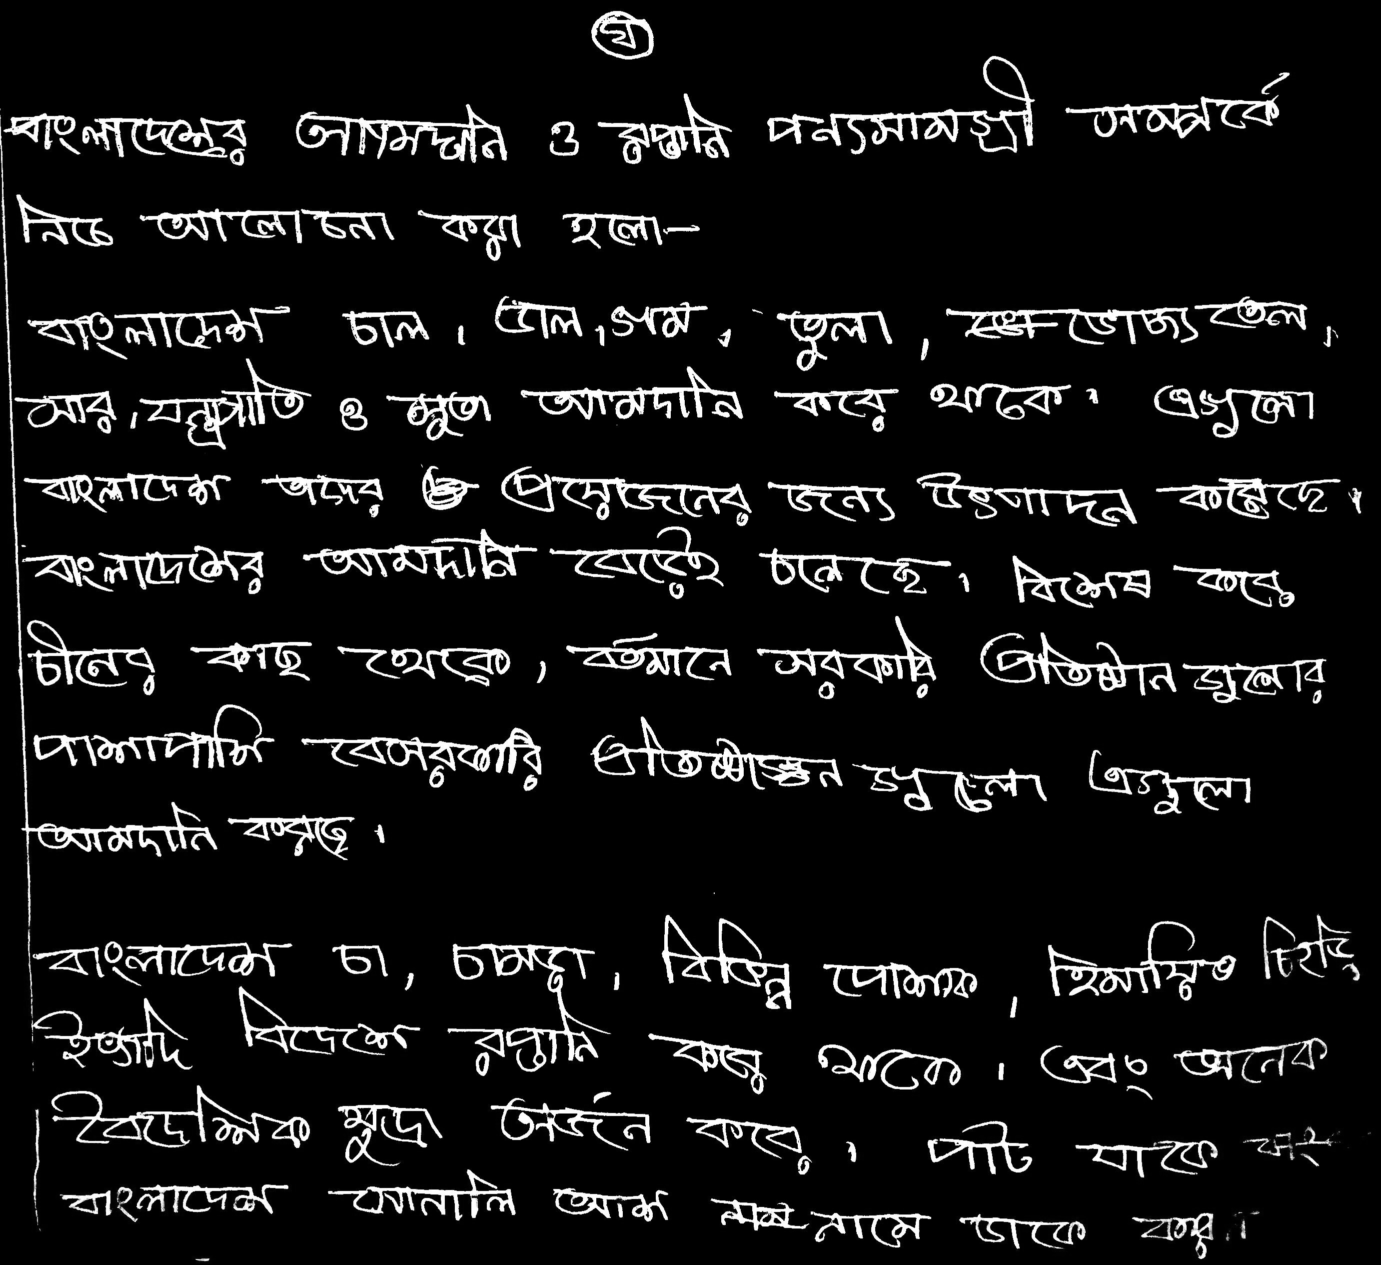 ঘ
বাংলাদেশের আমদানি ও রপ্তানি পন্যসামগ্রী সম্পর্কে
নিচে আলোচনা করা হলো-
বাংলাদেশ চাল, ডাল, গম, তুলা, ভোজ্য তেল,
সার, যন্ত্রপাতি ও সুতা আমদানি করে থাকে। এগুলো
বাংলাদেশ তাদের প্রয়োজনের জন্য উৎপাদন করেছে।
বাংলাদেশের আমদানি বেড়েই চলেছে। বিশেষ করে
চীনের কাছ থেকে, বর্তমানে সরকারি প্রতিষ্ঠান গুলোর
পাশাপাশি বেসরকারি প্রতিষ্ঠান গুলো এগুলো
আমদানি করছে।
বাংলাদেশ চা, চামড়া, বিভিন্ন পোশাক, হিমায়িত চিংড়ি
ইত্যাদি বিদেশে রপ্তানি করে থাকে। এবং অনেক
বৈদেশিক মুদ্রা অর্জন করে। পাট যাকে
বাংলাদেশ সোনালি আশ নামে ডাকে